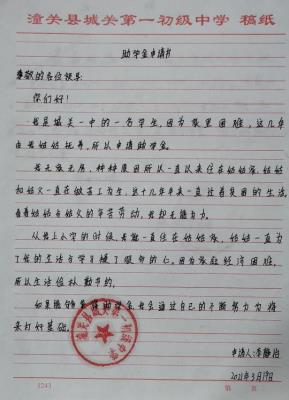 潼关县城关第一初级中学 稿纸
助学金申请书
尊敬的各位领导:
你们好!
我是城关一中的一名学生,因为家里困难,这几年
由我姑姑抚养,所以申请助学金。
我无父无母,种种原因所以一直以来住在姑姑家,姑姑
和姑父一直在做苦工为生,这十几年来一直过着贫困的生活,
看着姑姑与姑父的辛苦劳动,我却无能为力。
从我上小学的时候,我就一直住在姑姑家,姑姑一直为
了我的生活与学习操了很多的心。因为家庭经济困难,
所以生活俭朴勤节约。
如果能够获得助学金,我会通过自己的不断努力为将
来打好基础。
潼关县城关第一初级中学
申请人:李静怡
2021年3月19日
1243
第 页